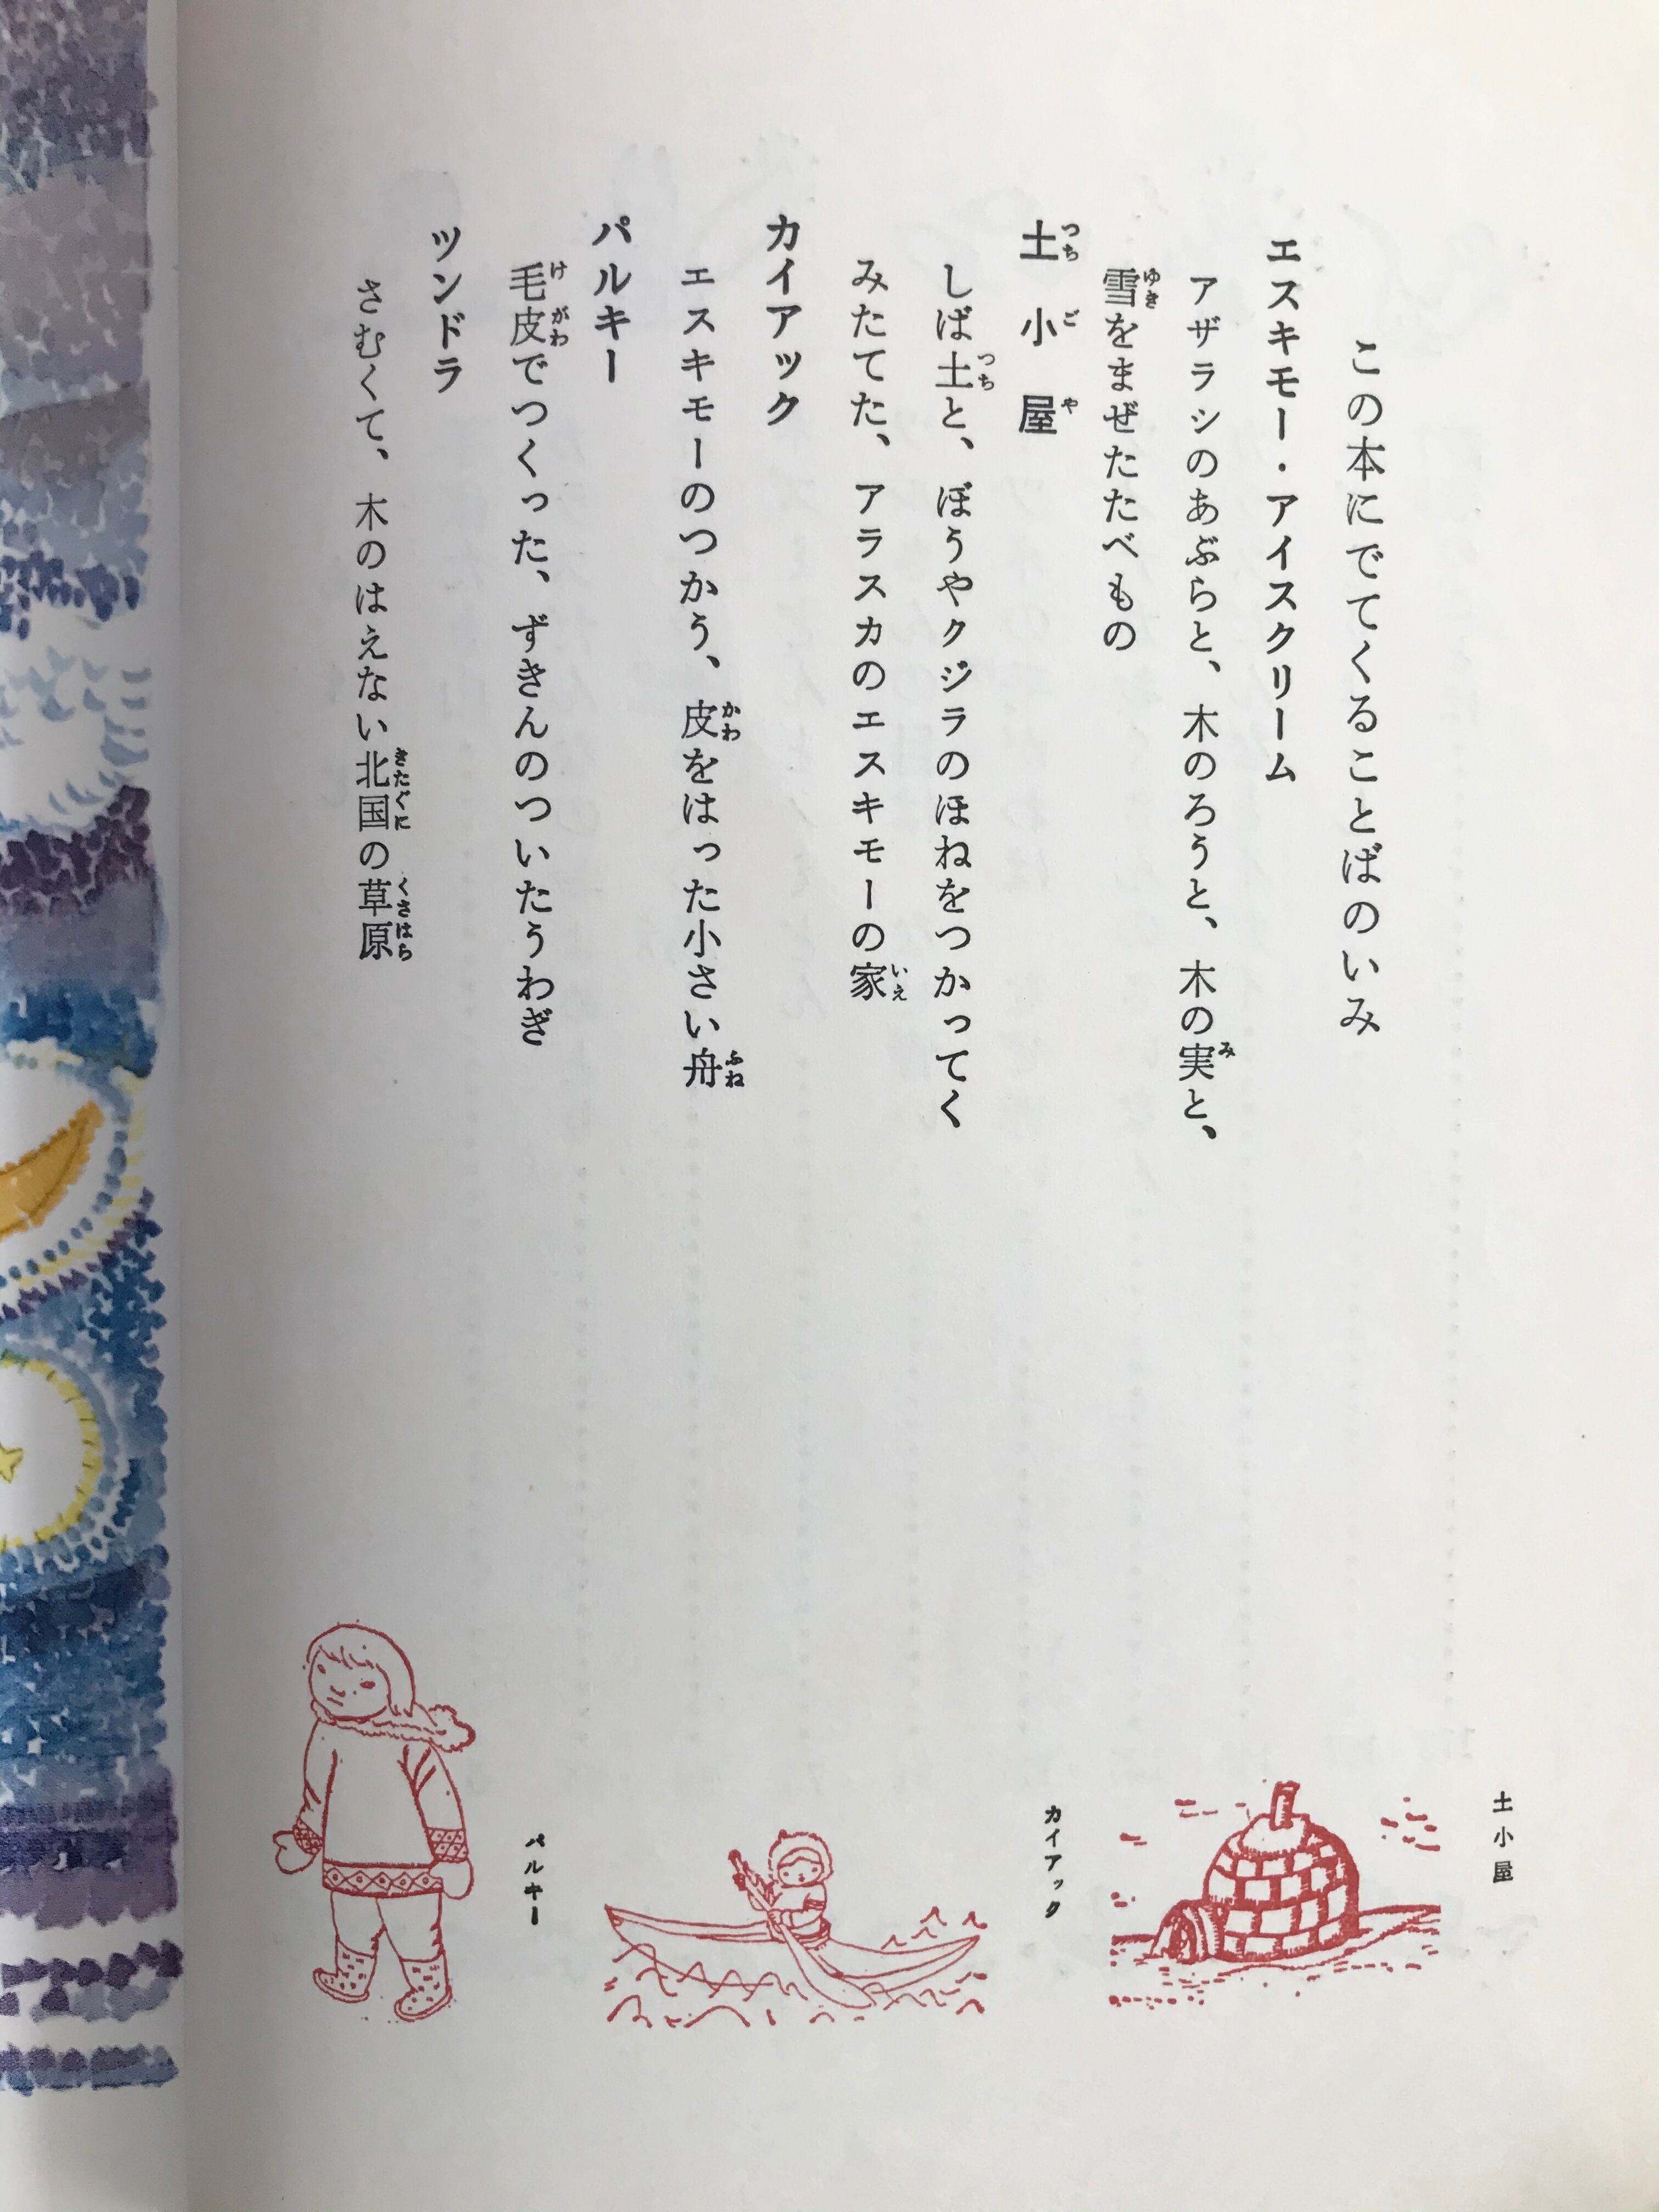 この本にでてくることばのいみ
エスキモー・アイスクリーム
アザラシのあぶらと、木のろうと、木の実と、
雪をまぜたたべもの
土小屋
しば土と、ぼうやクジラのほねをつかってく
みたてた、アラスカのエスキモーの家
カイアック
エスキモーのつかう、皮をはった小さい舟
パルキー
毛皮でつくった、ずきんのついたうわぎ
ツンドラ
さむくて、木のはえない北国の草原
土小屋
カイアック
パルキー